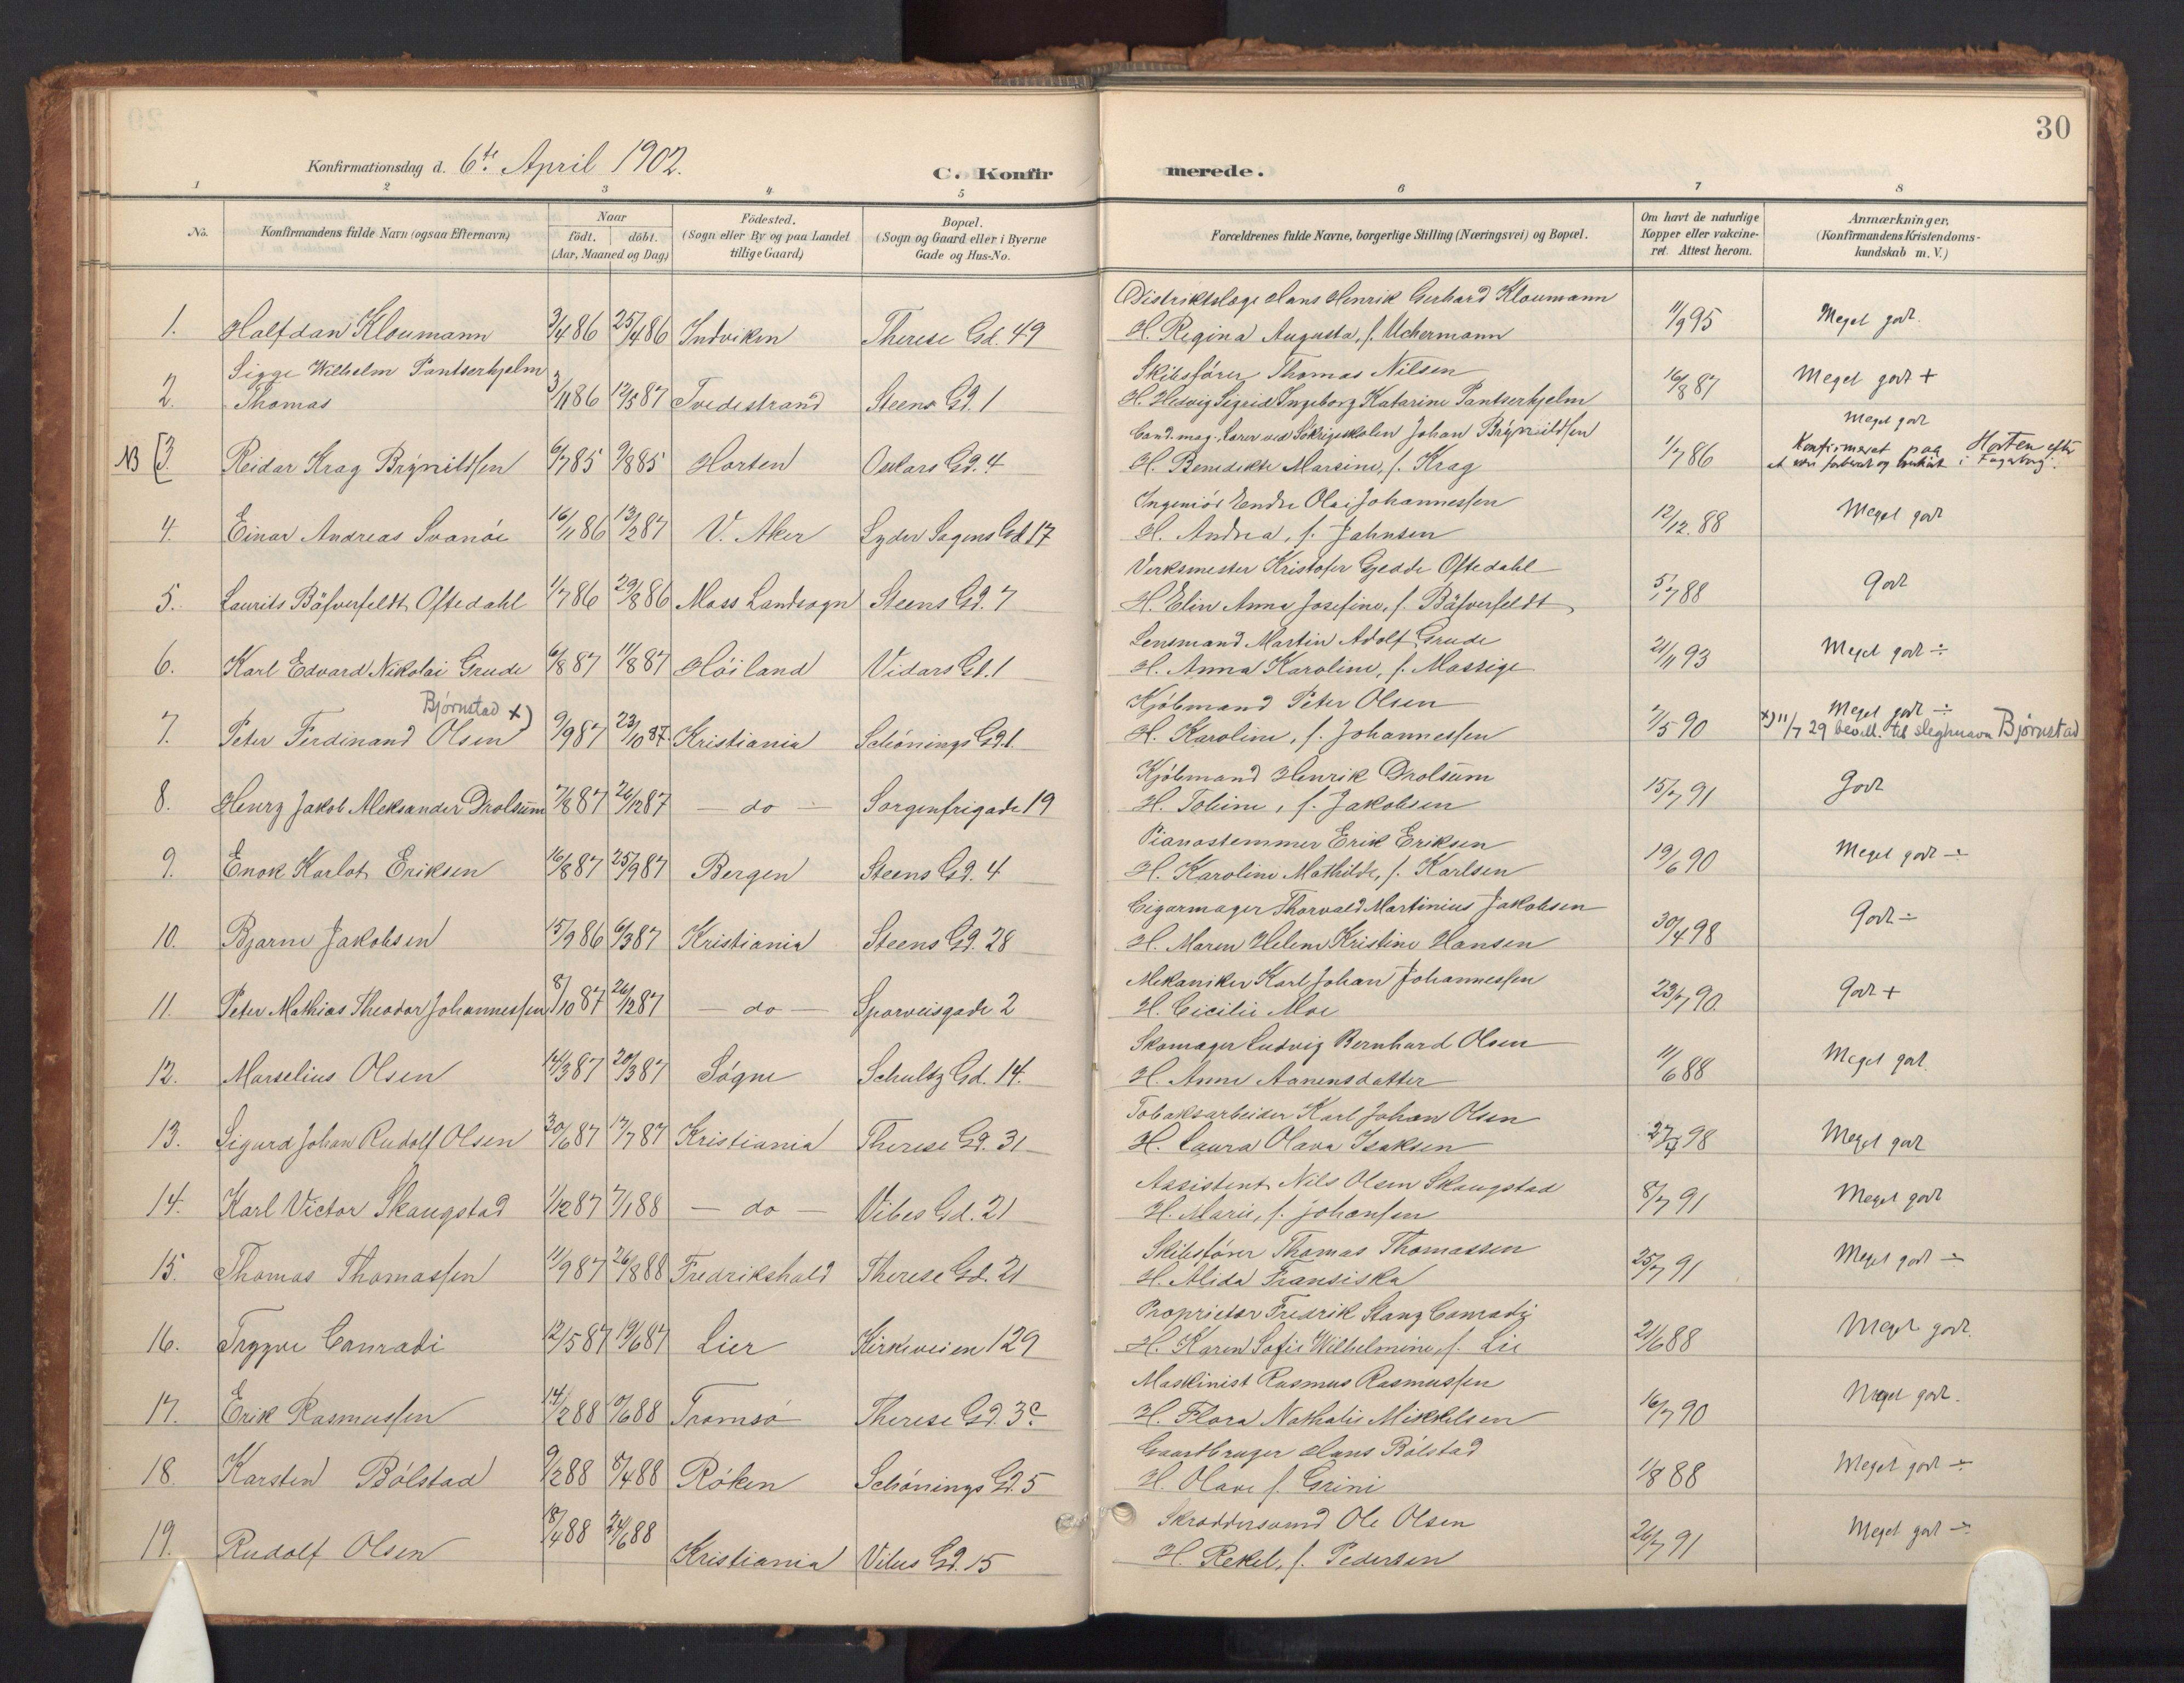 30
Konfirmationsdag d. 6te April 1902.
C. Konfirmerede.
1 2 3 4 5 6 7 8
No. Konfirmandens fulde Navn (ogsaa Efternavn) Naar födt. döbt. (Aar, Maaned og Dag) Födested. (Sogn eller By og paa Landet tillige Gaard) Bopæl. (Sogn og Gaard eller i Byerne Gade og Hus-No. Forældrenes fulde Navne, borgerlige Stilling (Næringsvei) og Bopæl. Om havt de naturlige Kopper eller vakcineret. Attest herom. Anmærkninger, (Konfirmandens Kristendomskundskab m. V.)
Distriktslæge Hans Henrik Gerhard Kloumann
1. Halfdan Kloumann 3/4 86 25/4 86 Indviken Therese Gd. 49 H. Regina Augusta, f. Uchermann 11/9 95 Meget godt.
Sigge Wilhelm Pantserhjelm Skibsfører Thomas Nilsen
2. Thomas 3/11 86 19/5 87 Tvedestrand Steens Gd. 1 H. Hedvig Sigrid Ingeborg Katarine Pantserhjelm 16/8 87 Meget godt +
Cand. mag. Lærer ved Søkrigsskolen Johan Brynildsen Meget godt
NB 3. Reidar Krag Brynildsen 6/7 85 9/8 85 Horten Oskars Gd. 4 H. Benedikte Marsine, f. Krag 1/7 86 Konfirmeret paa Horten efter at være forberedt og overhørt i Fagerborg.
Ingeniør Endre Olai Johannessen
4. Einar Andreas Svanöe 16/11 86 13/2 87 V. Aker Lyder Sagens Gd 17 H. Andrea, f. Jahnsen 12/12. 88 Meget godt
Verksmester Kristofer Gjedde Oftedahl
5. Laurits Bäfverfeldt Oftedahl 11/7 86 29/8 86 Moss Landsogn Steens Gd. 7 H. Elin Anna Josefine, f. Bäfverfeldt 5/7 88 Godt
Lensmand Martin Adolf Grude
6. Karl Edvard Nikolai Grude 6/8 87 11/8 87 Höiland Vidars Gd. 1 H. Anna Karoline, f. Massige 21/11 93 Meget godt ÷
Bjørnstad x) Kjöbmand Peter Olsen Meget godt ÷
7. Peter Ferdinand Olsen 9/9 87 23/10 87 Kristiania Schönings Gd. 1 H. Karoline, f. Johannessen 7/5 90 x) 11/7 29 bevill. til slegtnavn Bjørnstad
Kjöbmand Henrik Drolsum
8. Henry Jakob Aleksander Drolsum 7/8 87 26/12 87 — do — Sorgenfrigade 19 H. Tobine, f. Jakobsen 15/7 91 Godt
Pianostemmer Erik Eriksen
9. Enok Karlot Eriksen 16/8 87 25/9 87 Bergen Steens Gd. 4 H. Karoline Mathilde, f. Karlsen 19/6 90 Meget godt ÷
Cigarmager Thorvald Martinius Jakobsen
10. Bjarne Jakobsen 15/9 86 6/3 87 Kristiania Steens Gd. 28 H. Maren Helene Kristine Hansen 30/4 98 Godt ÷
Mekaniker Karl Johan Johannessen
11. Peter Mathias Theodor Johannessen 8/10 87 26/12 87 — do — Sporveisgade 2 H. Cicilie Moe 23/7 90. Godt +
Skomager Ludvig Bernhard Olsen
12. Marselius Olsen 14/3 87 20/3 87 Søgne Schultz Gd. 14. H. Anne Aanensdatter 11/6 88 Meget godt.
Tobaksarbeider Karl Johan Olsen
13. Sigurd Johan Rudolf Olsen 30/6 87 17/7 87 Kristiania Therese Gd. 31 H. Laura Olava Isaksen 27/4 98 Meget godt
Assistent Nils Olsen Skaugstad
14. Karl Victor Skaugstad 1/12 87 7/1 88 — do — Vibes Gd. 21 H. Marie, f. Johansen 8/7 91 Meget godt
Skibsfører Thomas Thomassen
15. Thomas Thomassen 11/9 87 26/8 88 Fredrikshald Therese Gd. 21 H. Alida Fransiska 25/7 91 Meget godt ÷
Proprietær Fredrik Stang Conradi
16. Trygve Conradi 12/5 87 19/6 87 Lier Kirkeveien 129 H. Karen Sofie Wilhelmine, f. Lie 21/6 88 Meget godt.
Maskinist Rasmus Rasmussen
17. Erik Rasmussen 14/2 88 10/6 88 Tromsö Therese Gd. 3c H. Flora Nathalie Mikkelsen 16/7 90 Meget godt.
Gaardbruger Hans Bölstad
18. Karsten Bölstad 9/2 88 8/4 88 Röken Schönings Gd. 5 H. Olave f. Grini 1/8 88 Meget godt ÷
Skræddersvend Ole Olsen
19. Rudolf Olsen 18/4 88 24/6 88 Kristiania Vibes Gd. 15 H. Rekel, f. Pedersen 26/7 91 Meget godt ÷